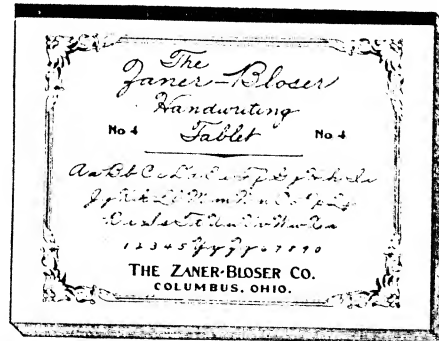 The
Zaner-Bloser
Handwriting
No 4 Tablet No 4
Aa Bb Cc Dd Ee Ff Gg Hh Ii
Jj Kk Ll Mm Nn Oo Pp Qq
Rr Ss Tt Uu Vv Ww Xx
1 2 3 4 5 Yy Zz 6 7 8 9 0
THE ZANER-BLOSER CO.
COLUMBUS, OHIO.